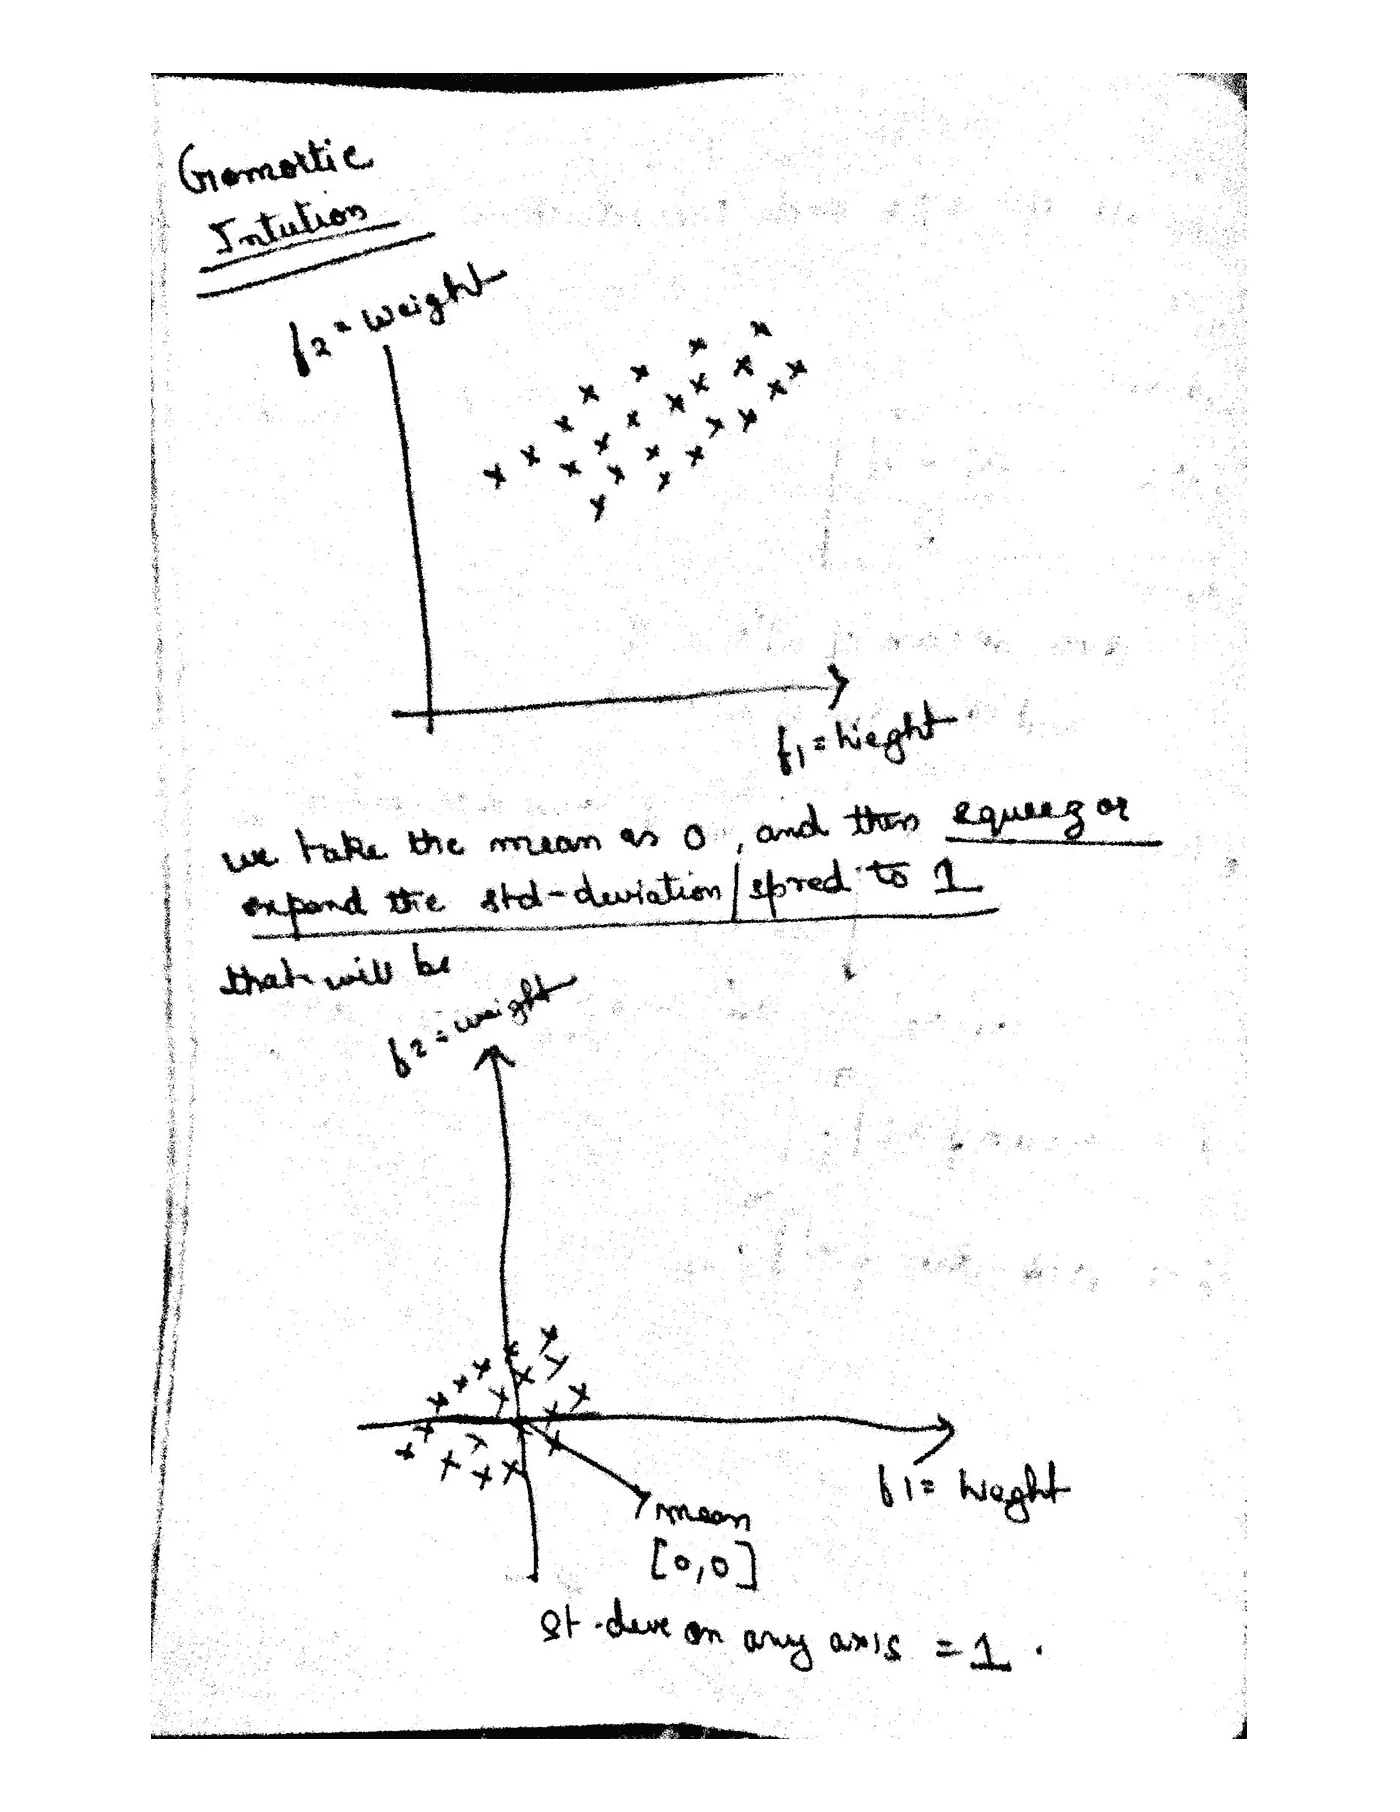 Gomortic
Intution
f2 = weight
f1 = hieght
we take the mean as 0, and then squeez or
expand the std-deviation/spred to 1
that will be
f2 = weight
f1 = hieght
mean
[0,0]
St-deve on any axis = 1.